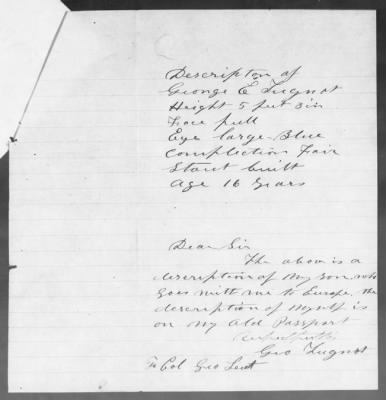 Descripton of
George E Lugnot
Height 5 feet 3 in
Face full
Eye large Blue
Complection Fair
Stout built
Age 16 Years
Dear Sir
The above is a
description of My son who
goes with me to Europe, the
description of Myself is
on My Old Passport
Respectfully
Geo Lugnot
To Col Geo